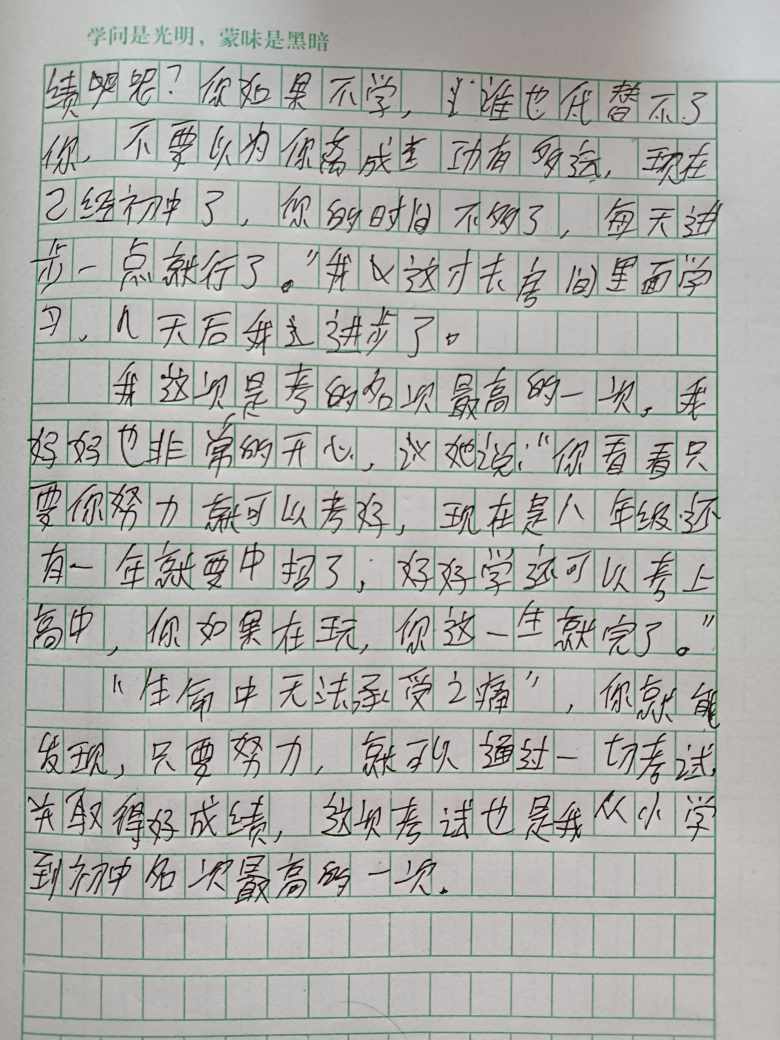 学问是光明，蒙昧是黑暗
绩呢？你如果不学，谁也代替不了
你，不要以为你离成功有多远，现在
已经初中了，你的时间不够了，每天进
步一点就行了。"我这才去房间里面学
习，几天后我进步了。
我这次是考的名次最高的一次，我
好好也非常的开心，她说："你看看只
要你努力就可以考好，现在是八年级还
有一年就要中招了，好好学还可以考上
高中，你如果在玩，你这一生就完了。"
"生命中无法承受之痛"，你就能
发现，只要努力，就可以通过一切考试，
并取得好成绩，这次考试也是我从小学
到初中名次最高的一次.